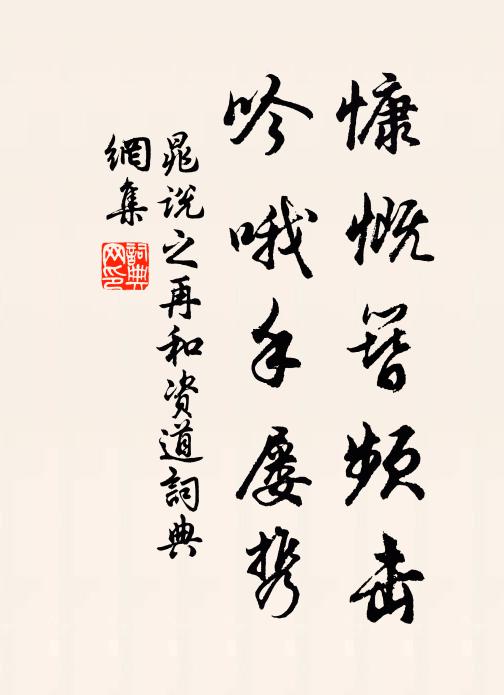 慷慨簪頻击
吟哦手屡携
晁说之再和资道詞典
網集
詞典
网印